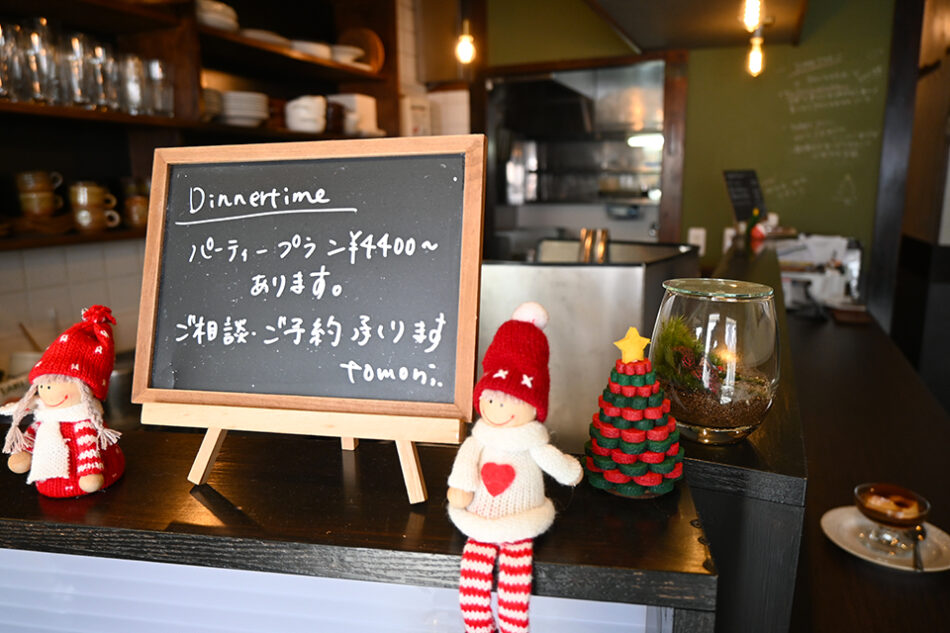 Dinnertime
パーティープラン¥4400～
あります。
ご相談・ご予約 承ります
tomoni..